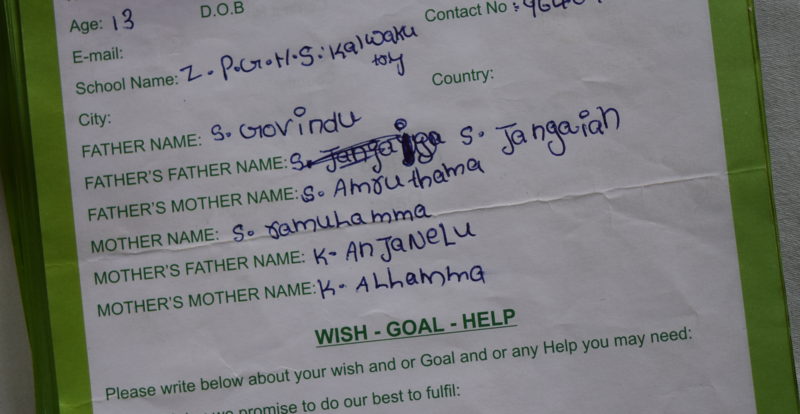 Age: 13 D.O.B Contact No :
E-mail:
School Name: Z. P.G.H.S: Kalwaku
City: Country:
FATHER NAME: S. Govindu
FATHER'S FATHER NAME: S. Jangaiah
FATHER'S MOTHER NAME: S. Amruthama
MOTHER NAME: S. ramulamma
MOTHER'S FATHER NAME: K. AnJANeLU
MOTHER'S MOTHER NAME: K. ALLamma
WISH - GOAL - HELP
Please write below about your wish and or Goal and or any Help you may need:
we promise to do our best to fulfil: